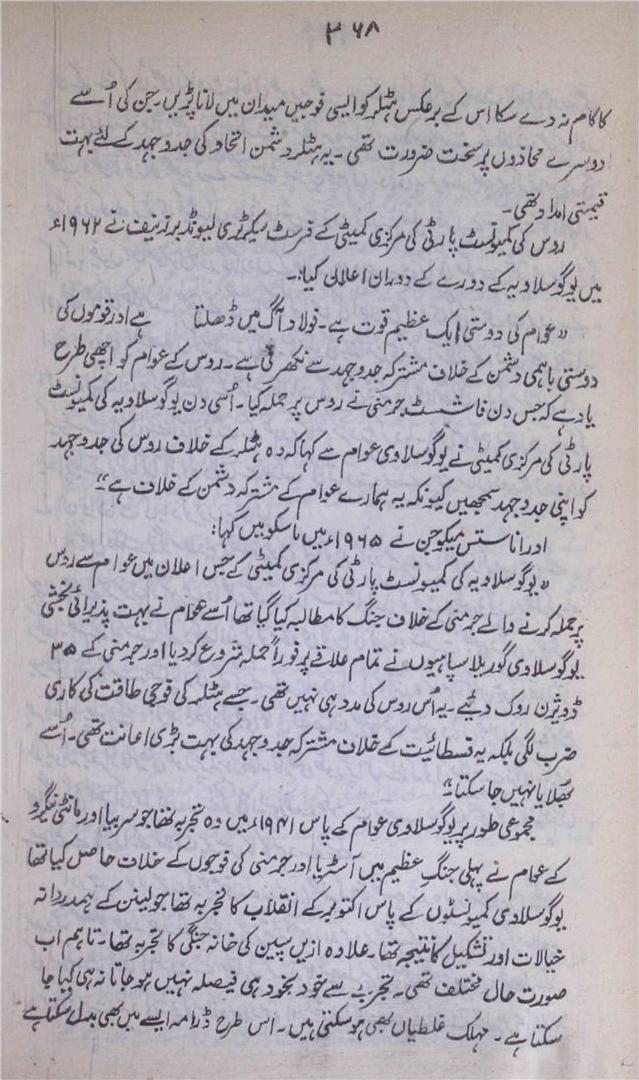 ۳۶۸
کا کام نہ دے سکا اس کے برعکس ہٹلر کو ایسی فوجیں میدان میں لانا پڑیں۔ جن کی اُسے
دوسرے محاذوں پر سخت ضرورت تھی۔ یہ ہٹلر دشمن اتحاد کی جدوجہد کے لئے بہت
قیمتی امداد تھی۔
روس کی کمیونسٹ پارٹی کی مرکزی کمیٹی کے فرسٹ سیکرٹری لیونڈ برزنیف نے ۱۹۶۲ء
میں یوگوسلاویہ کے دورے کے دوران اعلان کیا:۔
"عوام کی دوستی ایک عظیم قوت ہے۔ فولاد آگ میں ڈھلتا ہے اور قوموں کی
دوستی باہمی دشمن کے خلاف مشترکہ جدوجہد سے نکھرتی ہے۔ روس کے عوام کو اچھی طرح
یاد ہے کہ جس دن فاشسٹ جرمنی نے روس پر حملہ کیا۔ اُسی دن یوگوسلاویہ کی کمیونسٹ
پارٹی کی مرکزی کمیٹی نے یوگوسلاوی عوام سے کہا کہ وہ ہٹلر کے خلاف روس کی جدوجہد
کو اپنی جدوجہد سمجھیں کیونکہ یہ ہمارے عوام کے مشترکہ دشمن کے خلاف ہے"
اور اناستس میکوجن نے ۱۹۶۵ء میں ماسکو میں کہا:
"یوگوسلاویہ کی کمیونسٹ پارٹی کی مرکزی کمیٹی کے جس اعلان میں عوام سے روس
پر حملہ کرنے والے جرمنی کے خلاف جنگ کا مطالبہ کیا گیا تھا اُسے عوام نے بہت پذیرائی بخشی
یوگوسلاوی گوریلا سپاہیوں نے تمام علاقے پر فوراً حملہ شروع کر دیا اور جرمنی کے ۳۵
ڈویژن روک دیئے۔ یہ اُس روس کی مدد ہی نہیں تھی۔ جسے ہٹلر کی فوجی طاقت کی کاری
ضرب لگی بلکہ یہ فسطائیت کے خلاف مشترکہ جدوجہد کی بہت بڑی اعانت تھی۔ اُسے
بھُلایا نہیں جا سکتا۔"
مجموعی طور پر یوگوسلاوی عوام کے پاس ۱۹۴۱ء میں وہ تجربہ تھا جو سربیا اور مانٹی نیگرو
کے عوام نے پہلی جنگِ عظیم میں آسٹریا اور جرمنی کی فوجوں کے خلاف حاصل کیا تھا
یوگوسلاوی کمیونسٹوں کے پاس اکتوبر کے انقلاب کا تجربہ تھا جو لینن کے ہمدردانہ
خیالات اور تشکیل کا نتیجہ تھا۔ علاوہ ازیں سپین کی خانہ جنگی کا تجربہ تھا۔ تاہم اب
صورت حال مختلف تھی۔ تجربے سے خود بخود ہی فیصلہ نہیں ہو جاتا نہ ہی کیا جا
سکتا ہے۔ مہلک غلطیاں بھی ہو سکتی ہیں۔ اس طرح ڈرامہ ایسے میں بھی بدل سکتا ہے